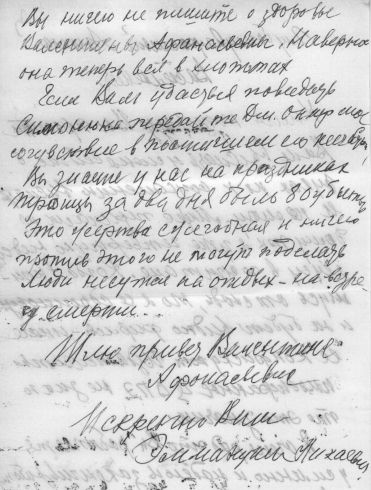 Вы ничего не пишите о здоровье
Валентины Афанасьевны. Наверно
она теперь вся в хлопотах
Если Вам удастся повидать
Симоненко передайте Дм. мое
сочувствие в постигшем его несчастьи
Вы знаете у нас на праздниках
троицы за два дня было 80 убитых
Это жертва ежегодная и ничего
против этого не могут поделать
Люди несутся на отдых - на встре
чу смерти...
Шлю привет Валентине
Афанасьевне
Искренно Ваш
Эммануил